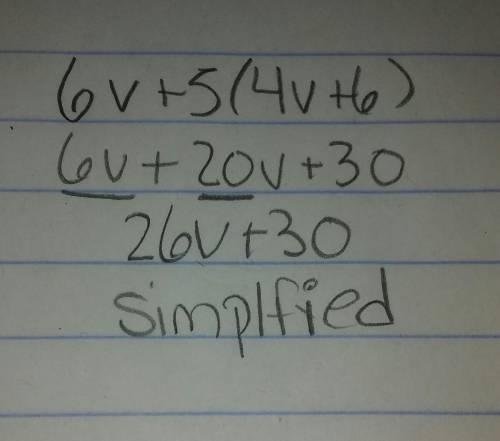 6v+5(4v+6)
6v+20v+30
26v+30
simplfied